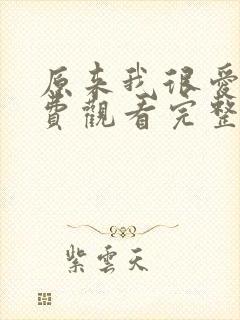 原来我很愛
費觀看完整
紫雲天